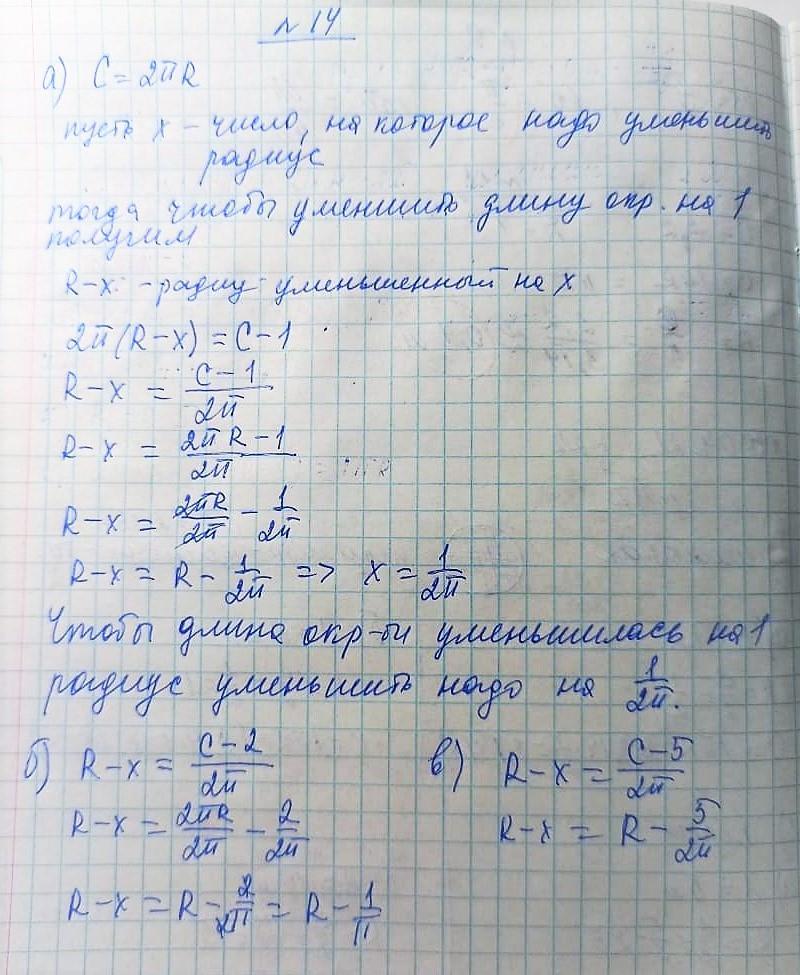 № 14
а) C = 2πR
пусть x – число, на которое надо уменьшить
радиус
тогда чтобы уменшить длину окр. на 1
получим
R-x - радиу уменьшенный на x
2π(R-x) = C-1
R-x = \frac{C-1}{2π}
R-x = \frac{2πR-1}{2π}
R-x = \frac{2πR}{2π} - \frac{1}{2π}
R-x = R - \frac{1}{2π} => x = \frac{1}{2π}
Чтобы длина окр-ти уменьшилась на 1
радиус уменьшить надо на \frac{1}{2π}.
б) R-x = \frac{C-2}{2π}
R-x = \frac{2πR}{2π} - \frac{2}{2π}
R-x = R - \frac{2}{2π} = R - \frac{1}{π}
в) R-x = \frac{C-5}{2π}
R-x = R - \frac{5}{2π}